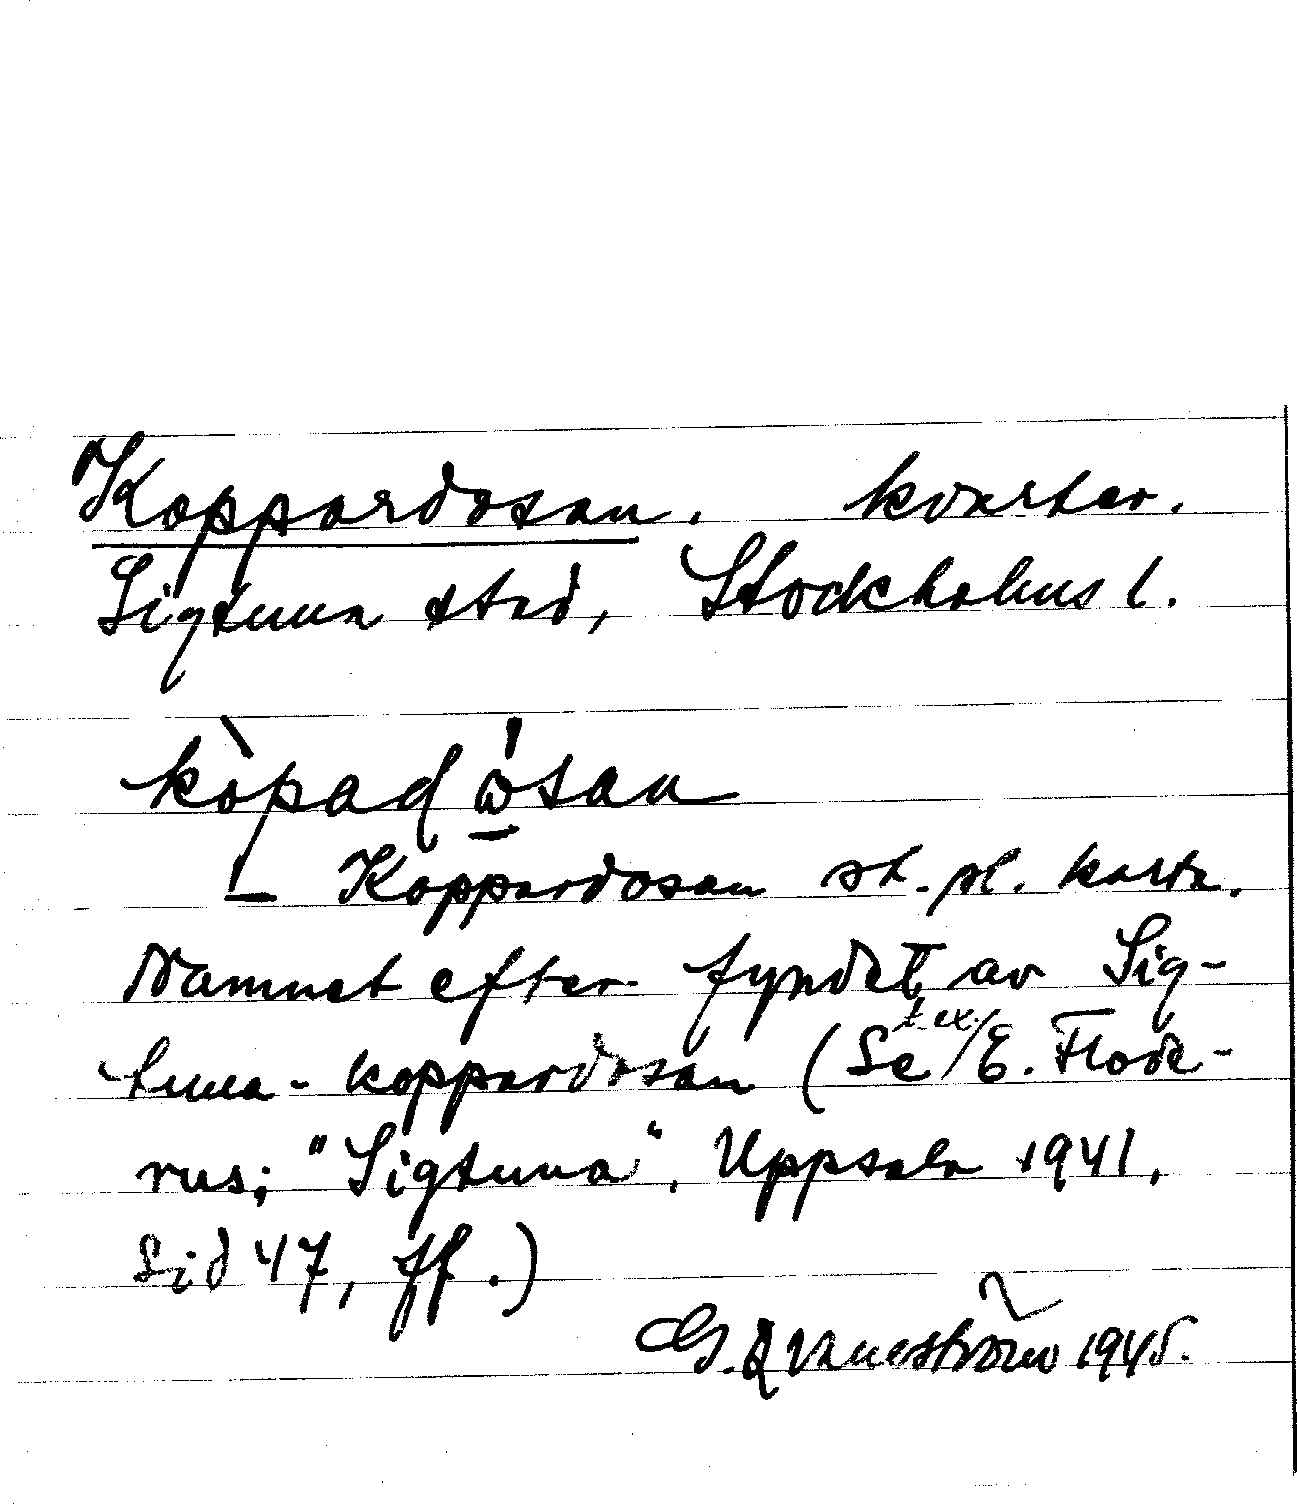 Koppardosan. kvarter.
Sigtuna stad, Stockholms l.
kòpadώ̱san
– Koppardosan st. pl. karta.
Namnet efter fyndet av Sig-
tuna-koppardosan (Se t.ex. E. Flode-
rus; "Sigtuna", Uppsala 1941,
sid 47, ff.)
G. 1945.